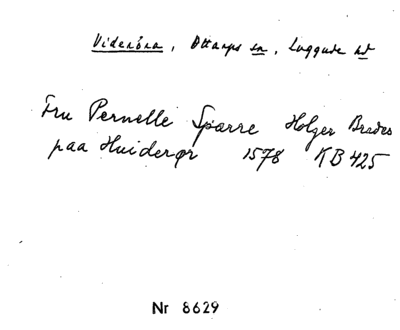 Videröra, Ottarps sn, Luggude hd
Fru Pernelle Sparre Holger Brades
paa Huiderør 1578 KB 425
Nr 8629